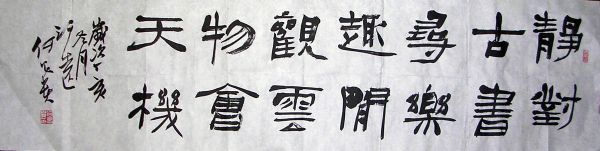 靜對
古書
尋樂
趣閒
觀雲
物會
天機
歲次丁亥
冬月